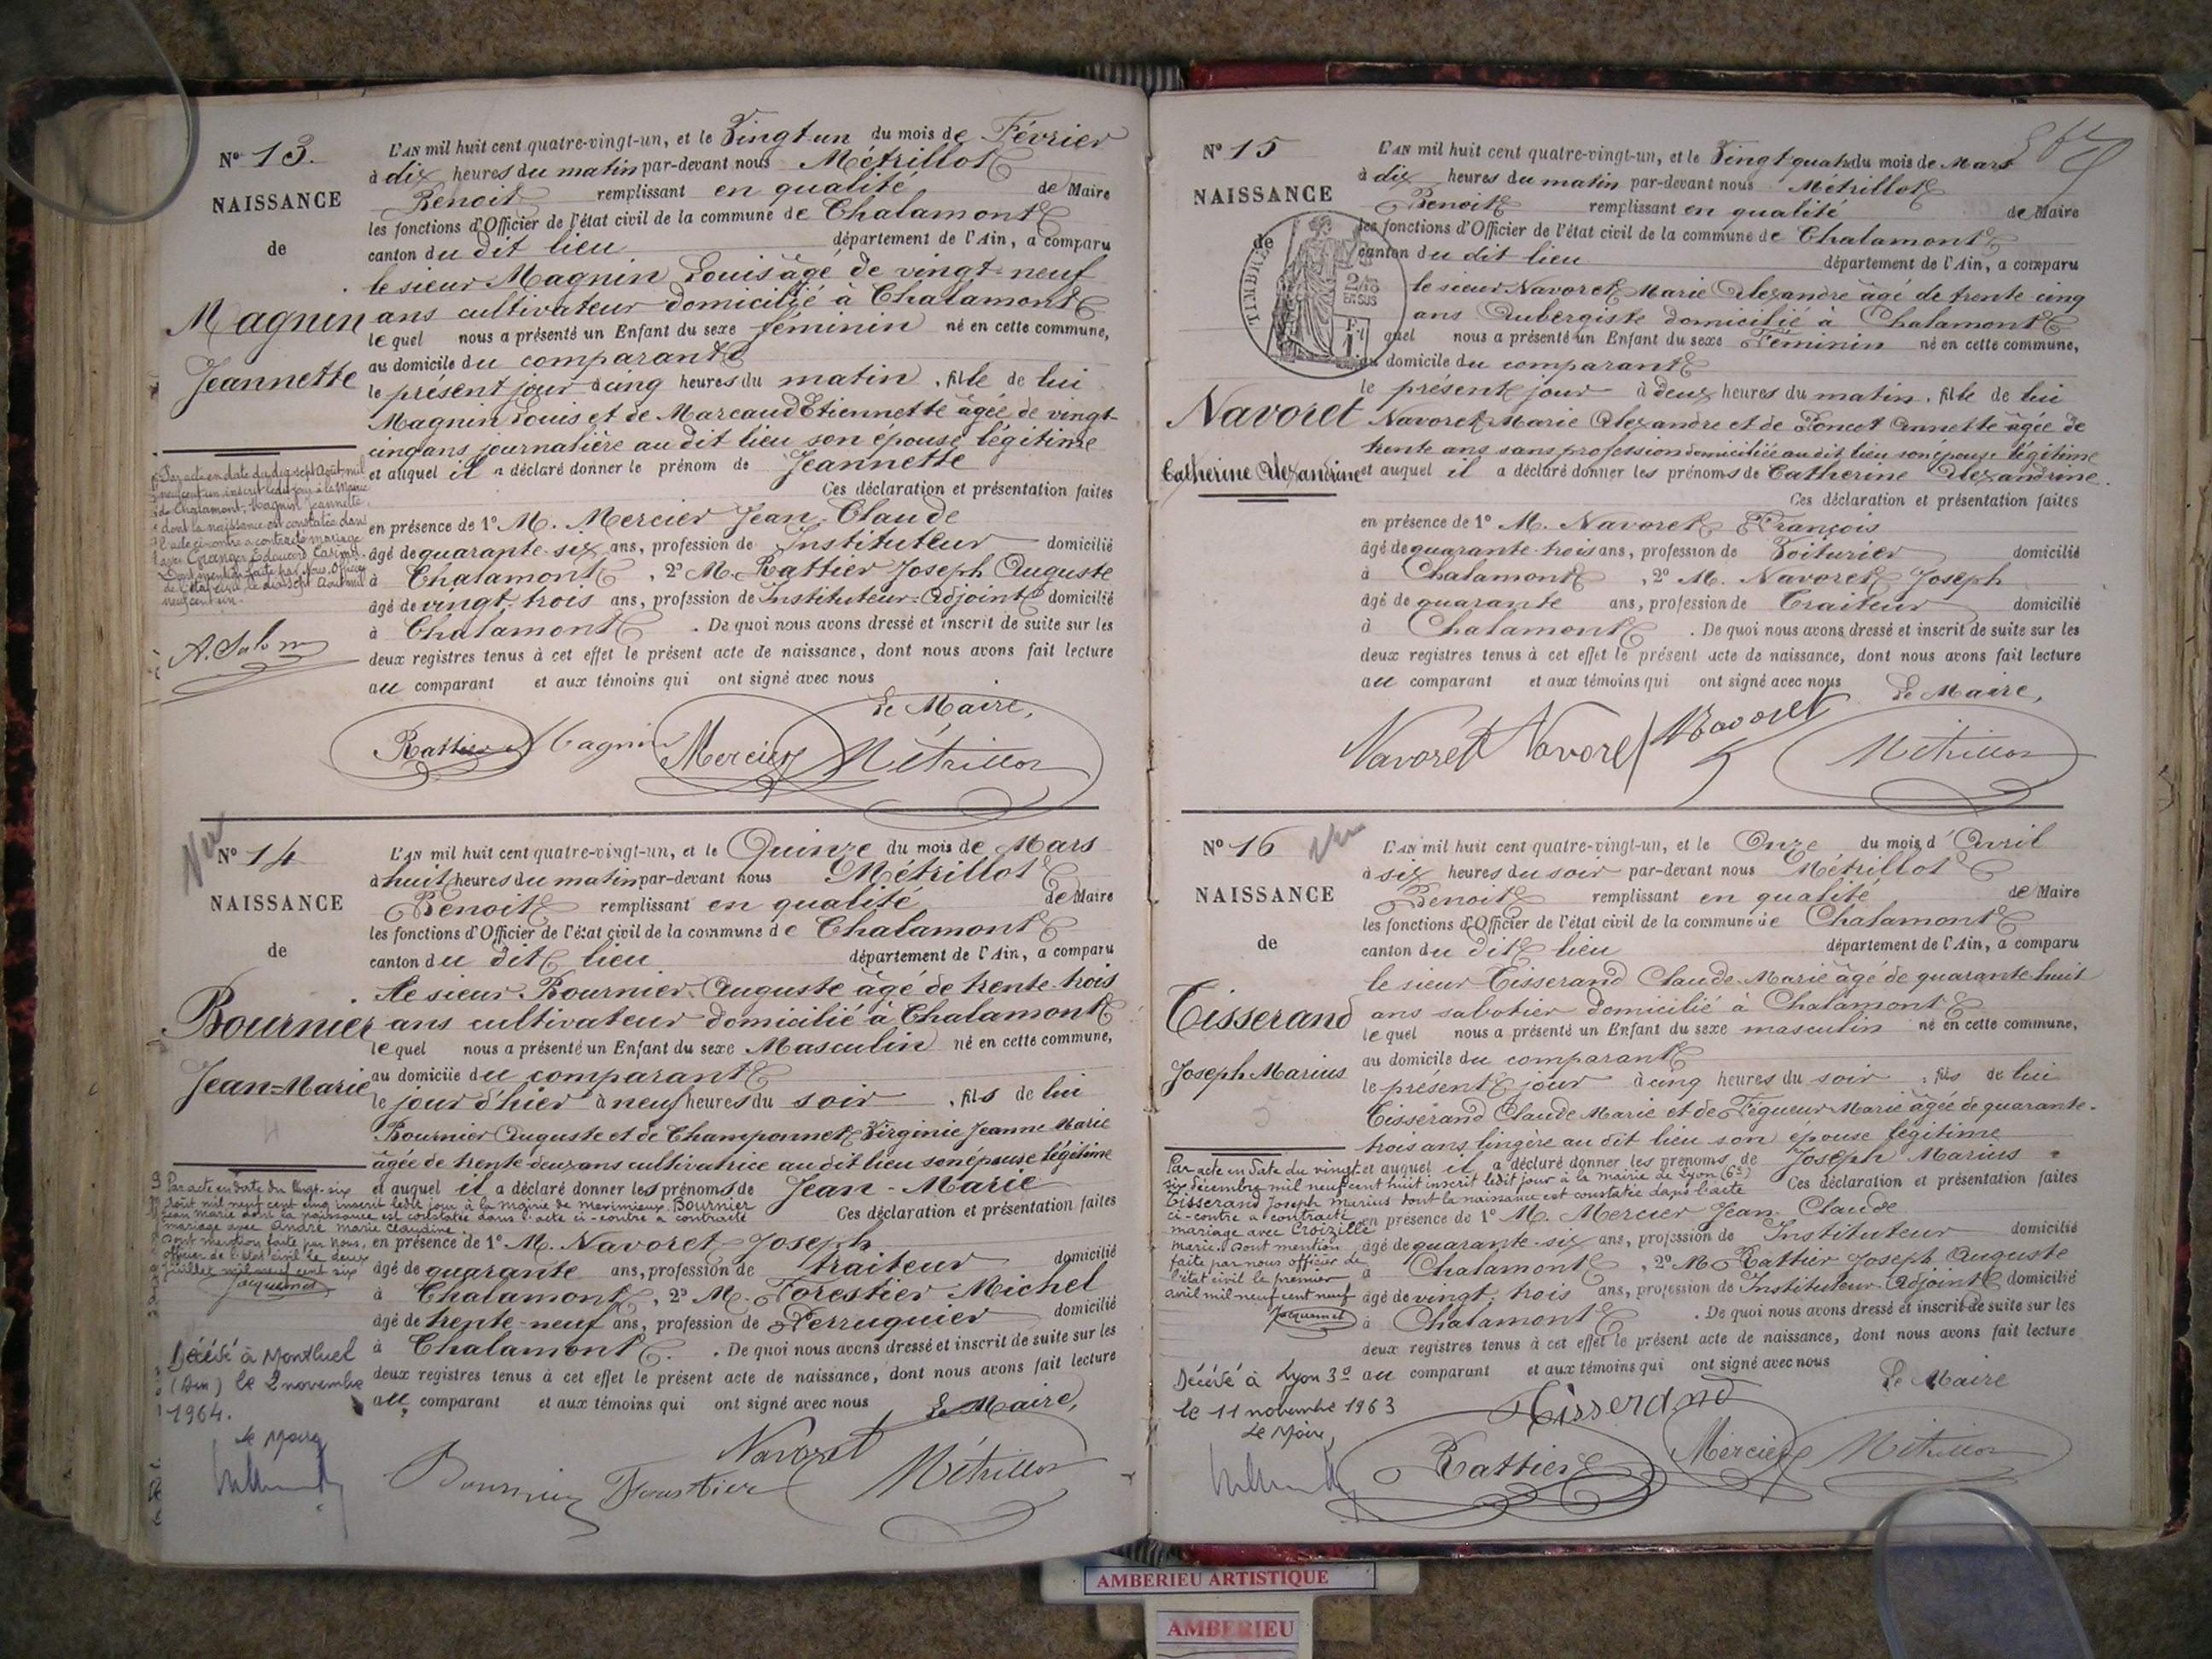 N° 13.
NAISSANCE
de
Magnin
Jeannette
L'AN mil huit cent quatre-vingt-un, et le Vingt-un du mois de Février
à dix heures du matin par-devant nous Métrillot
Benoit remplissant en qualité de Maire
les fonctions d'Officier de l'état civil de la commune de Chalamont
canton du dit lieu département de l'Ain, a comparu
le sieur Magnin Louis âgé de vingt-neuf
ans cultivateur domicilié à Chalamont
lequel nous a présenté un Enfant du sexe féminin né en cette commune,
au domicile du comparant
le présent jour à cinq heures du matin, fille de lui
Magnin Louis et de Marcaud Etiennette âgée de vingt-
cinq ans journalière au dit lieu son épouse légitime
et auquel il a déclaré donner le prénom de Jeannette
Ces déclaration et présentation faites
en présence de 1° M. Mercier Jean Claude
âgé de quarante-six ans, profession de Instituteur domicilié
à Chalamont, 2° M. Rattier Joseph Auguste
âgé de vingt-trois ans, profession de Instituteur-Adjoint domicilié
à Chalamont. De quoi nous avons dressé et inscrit de suite sur les
deux registres tenus à cet effet le présent acte de naissance, dont nous avons fait lecture
au comparant et aux témoins qui ont signé avec nous
Le Maire,
Rattier Magnin Mercier Métrillot
Par acte en date du dix sept Août mil
neuf cent un, inscrit ledit jour à la Mairie
de Chalamont, Magnin Jeannette
dont la naissance est constatée dans
l'acte ci-contre a contracté mariage
avec Granger Edouard Casimir.
Dont mention faite par Nous, Officier
de l'état civil, le dix sept Août mil
neuf cent un.
N° 14
NAISSANCE
de
Bournier
Jean-Marie
L'AN mil huit cent quatre-vingt-un, et le Quinze du mois de Mars
à huit heures du matin par-devant nous Métrillot
Benoit remplissant en qualité de Maire
les fonctions d'Officier de l'état civil de la commune de Chalamont
canton du dit lieu département de l'Ain, a comparu
le sieur Bournier Auguste âgé de trente-trois
ans cultivateur domicilié à Chalamont
lequel nous a présenté un Enfant du sexe Masculin né en cette commune,
au domicile du comparant
le jour d'hier à neuf heures du soir, fils de lui
Bournier Auguste et de Champonnet Virginie Jeanne Marie
âgée de trente-deux ans cultivatrice au dit lieu son épouse légitime
et auquel il a déclaré donner les prénoms de Jean-Marie
Ces déclaration et présentation faites
en présence de 1° M. Navoret Joseph
âgé de quarante ans, profession de traiteur domicilié
à Chalamont, 2° M. Forestier Michel
âgé de trente-neuf ans, profession de Perruquier domicilié
à Chalamont. De quoi nous avons dressé et inscrit de suite sur les
deux registres tenus à cet effet le présent acte de naissance, dont nous avons fait lecture
au comparant et aux témoins qui ont signé avec nous Le Maire,
Navoret
Bournier Forestier Métrillot
Par acte en date du vingt-six
août mil neuf cent cinq inscrit ledit jour à la mairie de meximieux, Bournier
Jean Marie dont la naissance est constatée dans l'acte ci-contre a contracté
mariage avec André marie claudine
Dont mention faite par Nous,
officier de l'état civil le deux
juillet mil neuf cent six
Jacquemet
Décédé à Montluel
(Ain) le 2 novembre
1964.
Le Maire
N° 15
NAISSANCE
de
TIMBRE
Navoret
Catherine Alexandrine
L'AN mil huit cent quatre-vingt-un, et le Vingt-quatre du mois de Mars
à dix heures du matin par-devant nous Métrillot
Benoit remplissant en qualité de Maire
les fonctions d'Officier de l'état civil de la commune de Chalamont
canton du dit lieu département de l'Ain, a comparu
le sieur Navoret Marie Alexandre âgé de trente cinq
ans Aubergiste domicilié à Chalamont
quel nous a présenté un Enfant du sexe Féminin né en cette commune,
au domicile du comparant
le présent jour à deux heures du matin, fille de lui
Navoret Marie Alexandre et de Poncet Annette âgée de
trente ans sans profession domiciliée au dit lieu son épouse légitime
et auquel il a déclaré donner les prénoms de Catherine Alexandrine.
Ces déclaration et présentation faites
en présence de 1° M. Navoret François
âgé de quarante-trois ans, profession de Voiturier domicilié
à Chalamont, 2° M. Navoret Joseph
âgé de quarante ans, profession de Traiteur domicilié
à Chalamont. De quoi nous avons dressé et inscrit de suite sur les
deux registres tenus à cet effet le présent acte de naissance, dont nous avons fait lecture
au comparant et aux témoins qui ont signé avec nous Le Maire,
Navoret Navoret Navoret Métrillot
N° 16
NAISSANCE
de
Tisserand
Joseph Marius
L'AN mil huit cent quatre-vingt-un, et le Onze du mois d'Avril
à six heures du soir par-devant nous Métrillot
Benoit remplissant en qualité de Maire
les fonctions d'Officier de l'état civil de la commune de Chalamont
canton du dit lieu département de l'Ain, a comparu
le sieur Tisserand Claude-Marie âgé de quarante-huit
ans sabotier domicilié à Chalamont
lequel nous a présenté un Enfant du sexe masculin né en cette commune,
au domicile du comparant
le présent jour à cinq heures du soir, fils de lui
Tisserand Claude Marie et de Fégueur Marie âgée de quarante-
trois ans lingère au dit lieu son épouse légitime
et auquel il a déclaré donner les prénoms de Joseph Marius
Ces déclaration et présentation faites
en présence de 1° M. Mercier Jean-Claude
âgé de quarante-six ans, profession de Instituteur domicilié
à Chalamont, 2° M. Rattier Joseph Auguste
âgé de vingt-trois ans, profession de Instituteur-Adjoint domicilié
à Chalamont. De quoi nous avons dressé et inscrit de suite sur les
deux registres tenus à cet effet le présent acte de naissance, dont nous avons fait lecture
au comparant et aux témoins qui ont signé avec nous
Le Maire
Tisserand
Rattier Mercier Métrillot
Par acte en date du vingt
six décembre mil neuf cent huit inscrit ledit jour à la mairie de Lyon (6e)
Tisserand Joseph Marius dont la naissance est constatée dans l'acte
ci-contre a contracté
mariage avec Croizille
marie. Dont mention
faite par nous officier de
l'état civil le premier
avril mil neuf cent neuf
Jacquemet
Décédé à Lyon 3e
le 11 novembre 1963
Le Maire,
AMBERIEU ARTISTIQUE
AMBERIEU